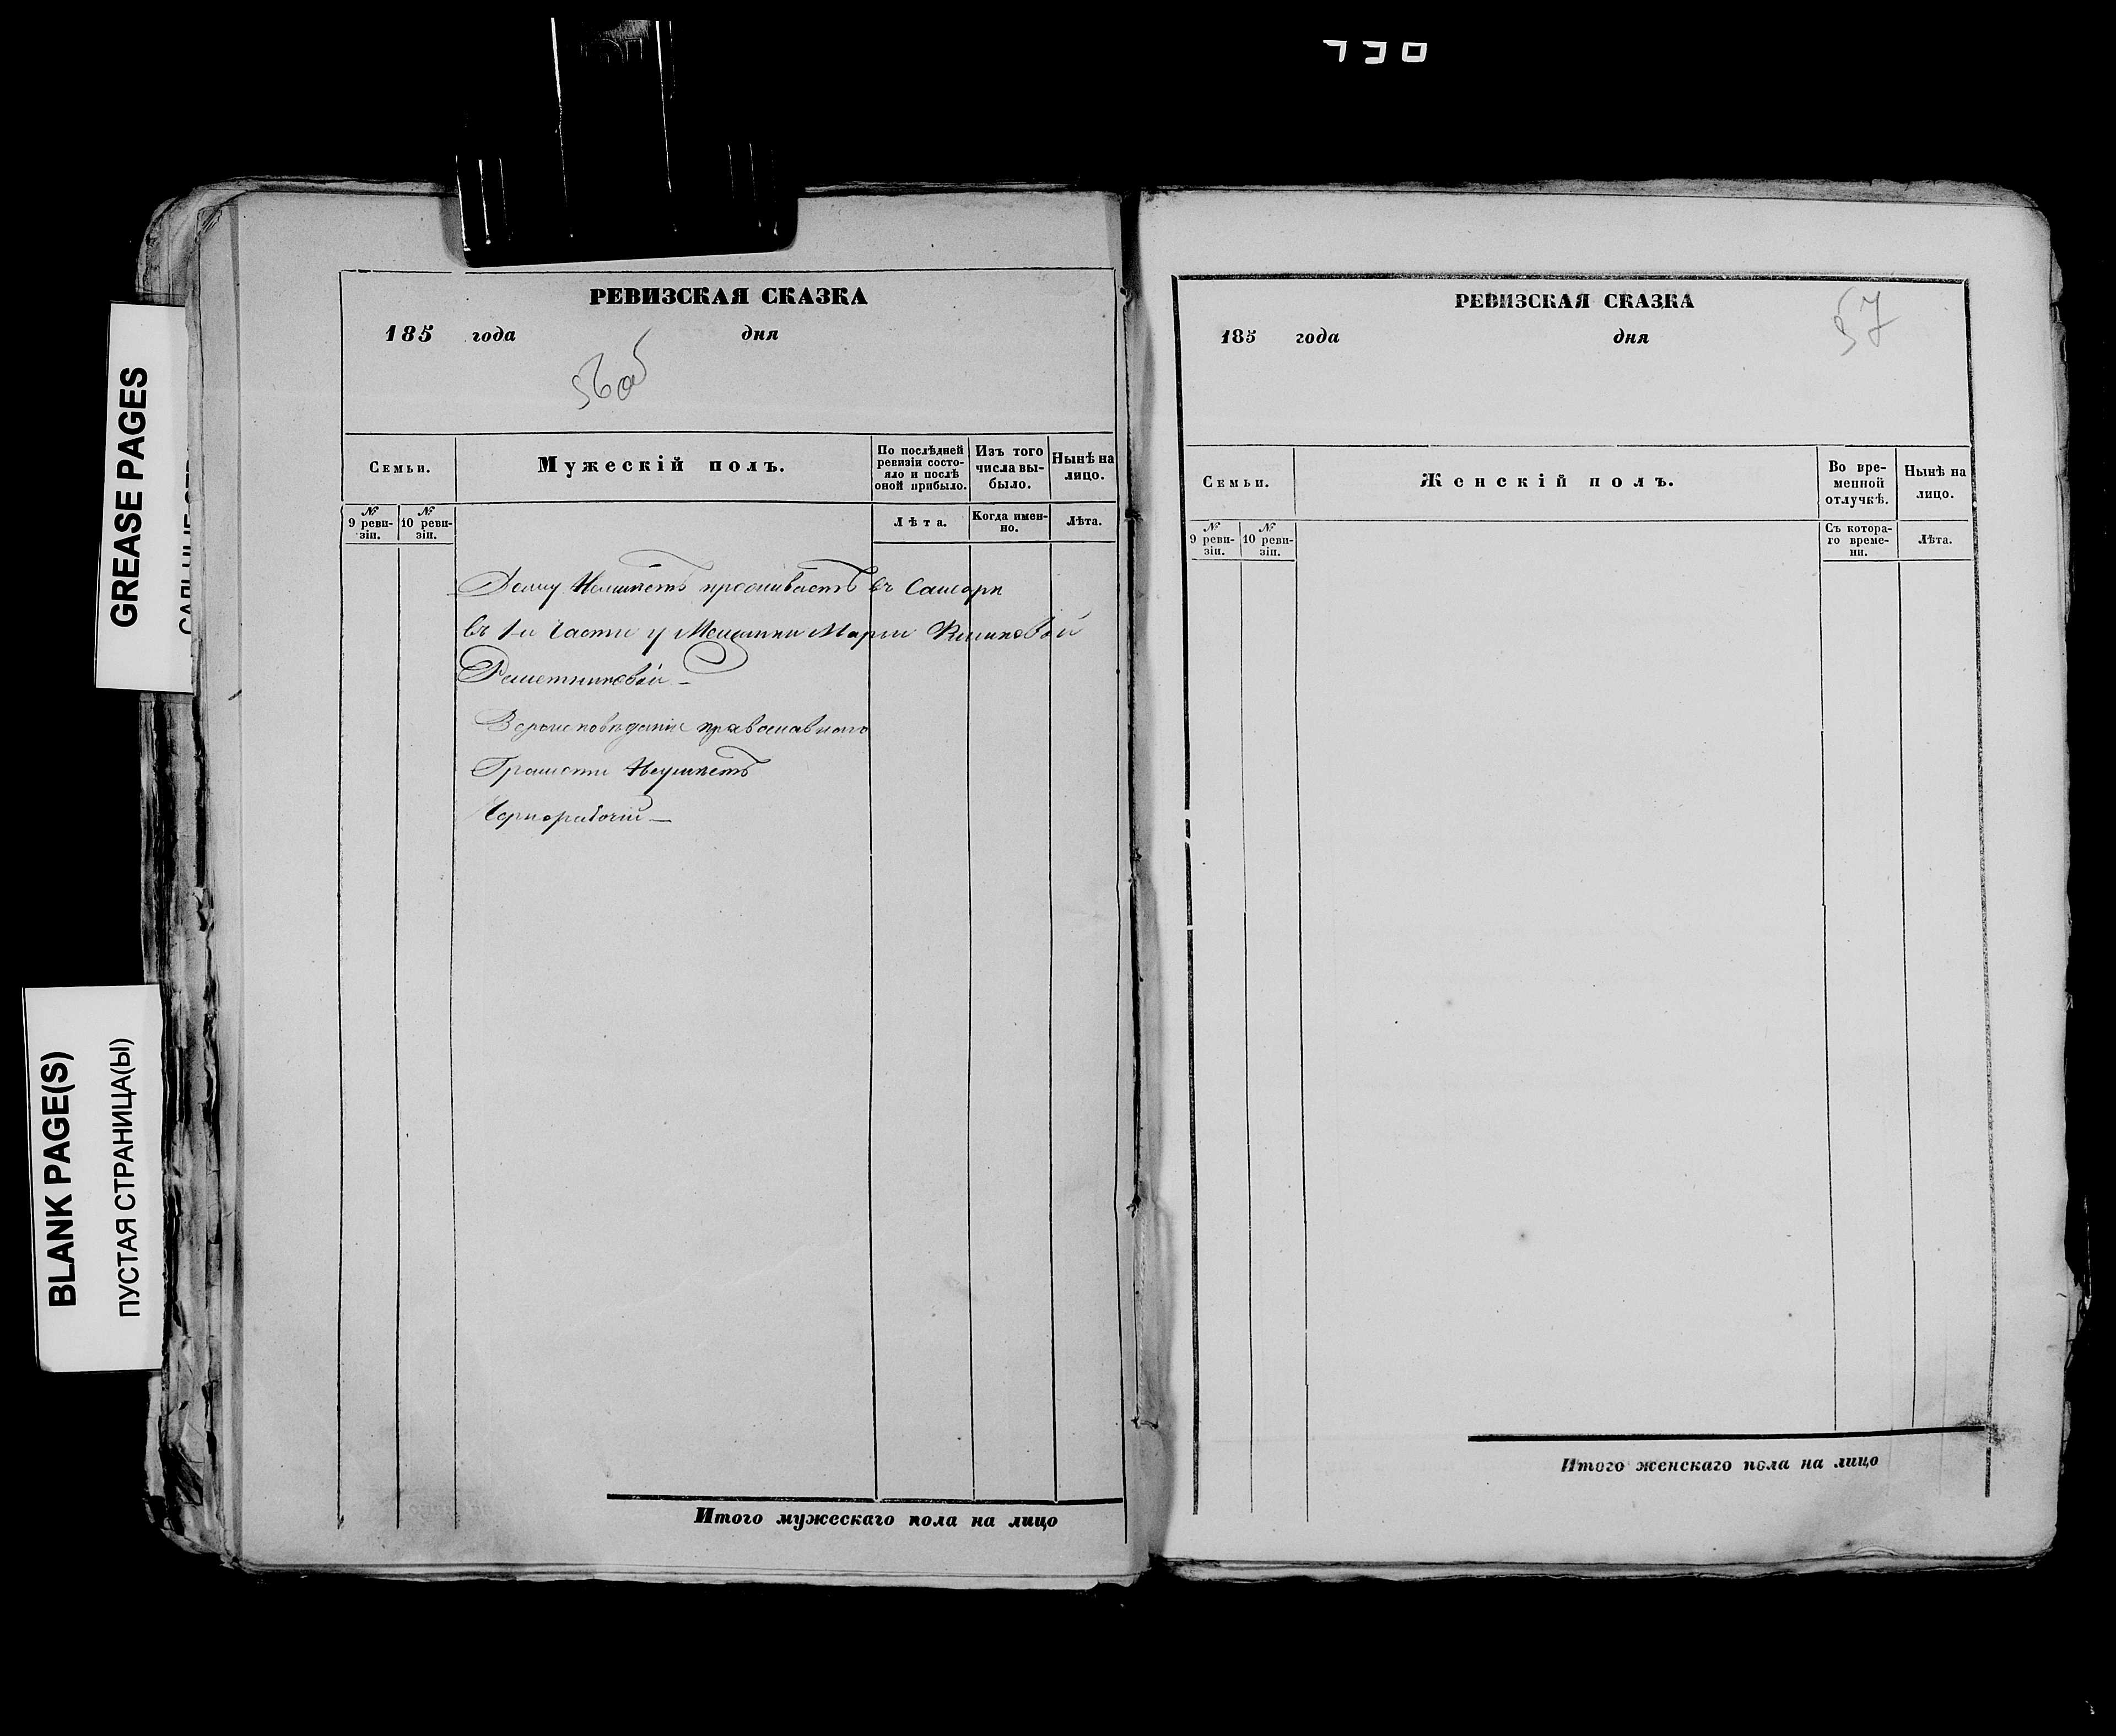 730
GREASE PAGES
BLANK PAGE(S)
ПУСТАЯ СТРАНИЦА(Ы)
РЕВИЗСКАЯ СКАЗКА
185 года дня
56об
Семьи.
Мужескій полъ.
По послѣдней ревизіи состояло и послѣ оной прибыло.
Изъ того числа выбыло.
Нынѣ на лицо.
№ 9 ревизіи.
№ 10 ревизіи.
Лѣта.
Когда именно.
Лѣта.
Дому Неимѣетъ проживаетъ въ Самарѣ
въ 1й Части у Мещанки Марьи
Решетниковой
Вероисповѣданія православнаго
Грамоти Неумѣетъ
Чернорабочій
Итого мужескаго пола на лицо
РЕВИЗСКАЯ СКАЗКА
57
185 года дня
Семьи.
Женскій полъ.
Во временной отлучкѣ.
Нынѣ на лицо.
№ 9 ревизіи.
№ 10 ревизіи.
Съ котораго времени.
Лѣта.
Итого женскаго пола на лицо